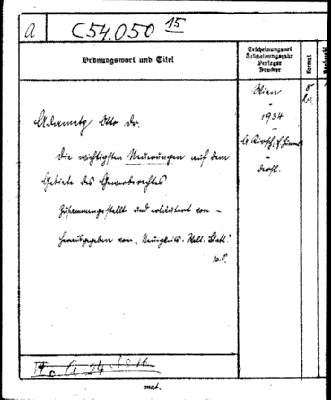 A
C54.050 15
Ordnungswort und Titel
Erscheinungsort
Erscheinungsjahr
Verleger
Drucker
Format
Adametz Otto Dr.
Die wichtigsten Neuerungen auf dem
Gebiete des Gewerberechtes
Zusammengestellt und erläutert von –
Herausgegeben von „Neuigkeits-Welt-Blatt“
Wien
–
1934
–
–
dersl.
8°
mat.